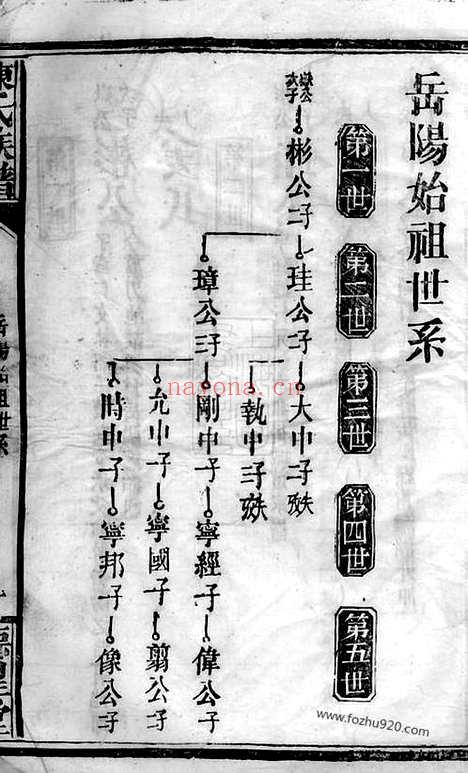 岳陽始祖世系
第一世 第二世 第三世 第四世 第五世
彬公二子 珪公二子 大中子殀
執中子殀
璋公三子 剛中子 寧經子 偉公子
允中子 寧國子 翦公子
時中子 寧邦子 像公子
陳氏族譜
岳陽始祖世系
nayona.cn
www.fozhu920.com